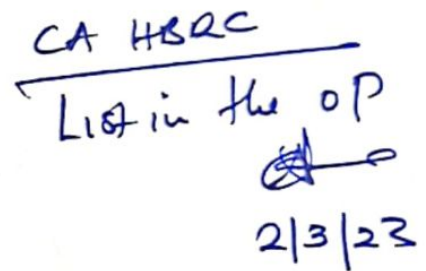 CA HBRC
List in the OP
2/3/23